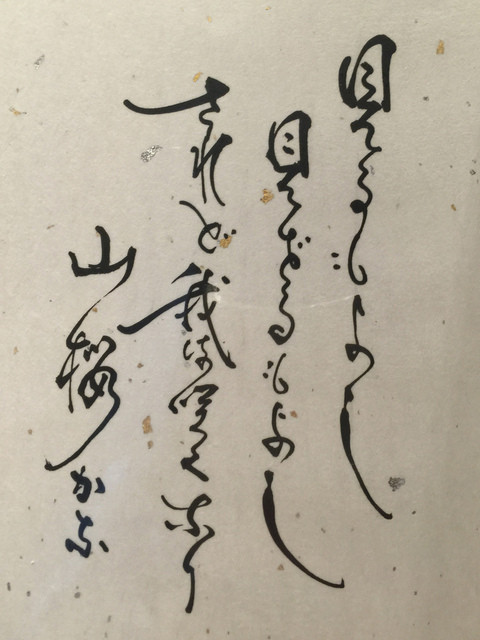 見るもよし
見ざるもよし
されど我は咲くなり
山桜かな